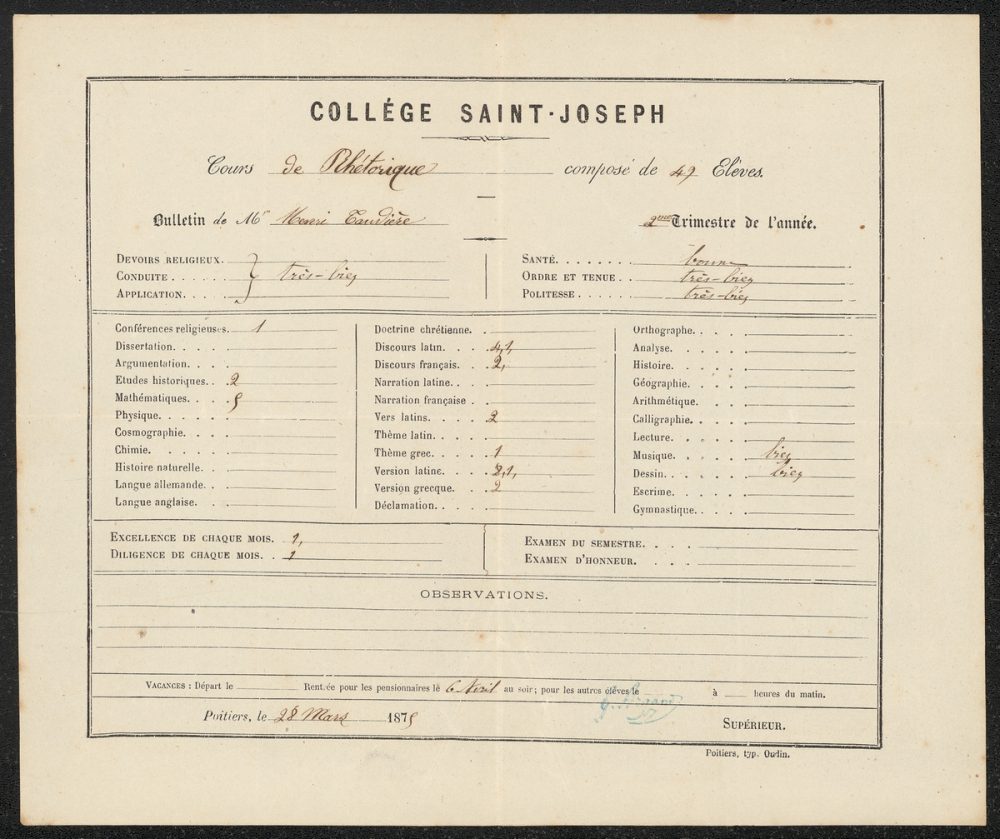 COLLÉGE SAINT-JOSEPH
Cours de Rhétorique composé de 49 Elèves.
Bulletin de Mr Henri Taudière 2me Trimestre de l'année.
DEVOIRS RELIGIEUX.
CONDUITE . . . . . très-bien
APPLICATION. . . .
SANTÉ. . . . . . . . bonne
ORDRE ET TENUE . . . très-bien
POLITESSE . . . . . . très-bien
Conférences religieuses. 1
Dissertation. . . . .
Argumentation. . . .
Etudes historiques. . 2
Mathématiques. . . . 5
Physique. . . . . .
Cosmographie. . . .
Chimie. . . . . .
Histoire naturelle. . .
Langue allemande. . .
Langue anglaise. . . .
Doctrine chrétienne. .
Discours latin. . . . 4,1,
Discours français. . . 2,
Narration latine. . . .
Narration française . .
Vers latins. . . . . 2
Thème latin. . . . .
Thème grec. . . . . 1
Version latine. . . . 2,1,
Version grecque. . . 2
Déclamation. . . . .
Orthographe. . . . .
Analyse. . . . . .
Histoire. . . . . .
Géographie. . . . .
Arithmétique. . . .
Calligraphie. . . . .
Lecture. . . . . .
Musique. . . . . . bien
Dessin. . . . . . bien
Escrime. . . . . .
Gymnastique. . . . .
EXCELLENCE DE CHAQUE MOIS. . 1,
DILIGENCE DE CHAQUE MOIS. . . 1
EXAMEN DU SEMESTRE. . . .
EXAMEN D'HONNEUR. . . .
OBSERVATIONS.
VACANCES : Départ le Rentrée pour les pensionnaires le 6 Avril au soir; pour les autres élèves le à heures du matin.
Poitiers, le 28 Mars 1875
SUPÉRIEUR.
Poitiers, typ. Oudin.